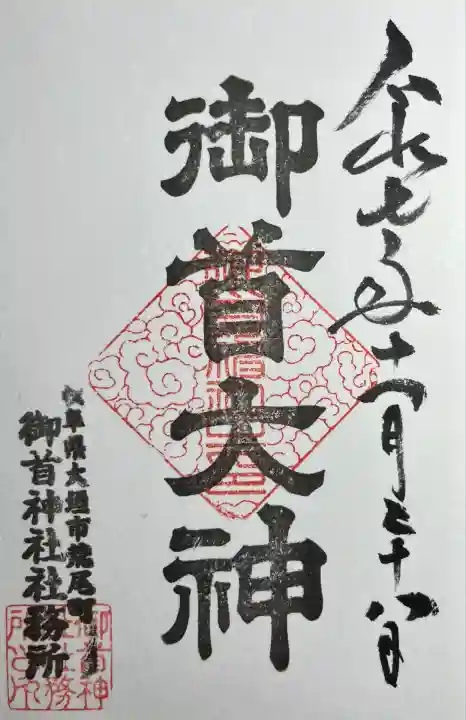 令和七年十一月二十八日
御首大神
岐阜県大垣市荒尾町
御首神社社務所
御首神
社社務
所之印